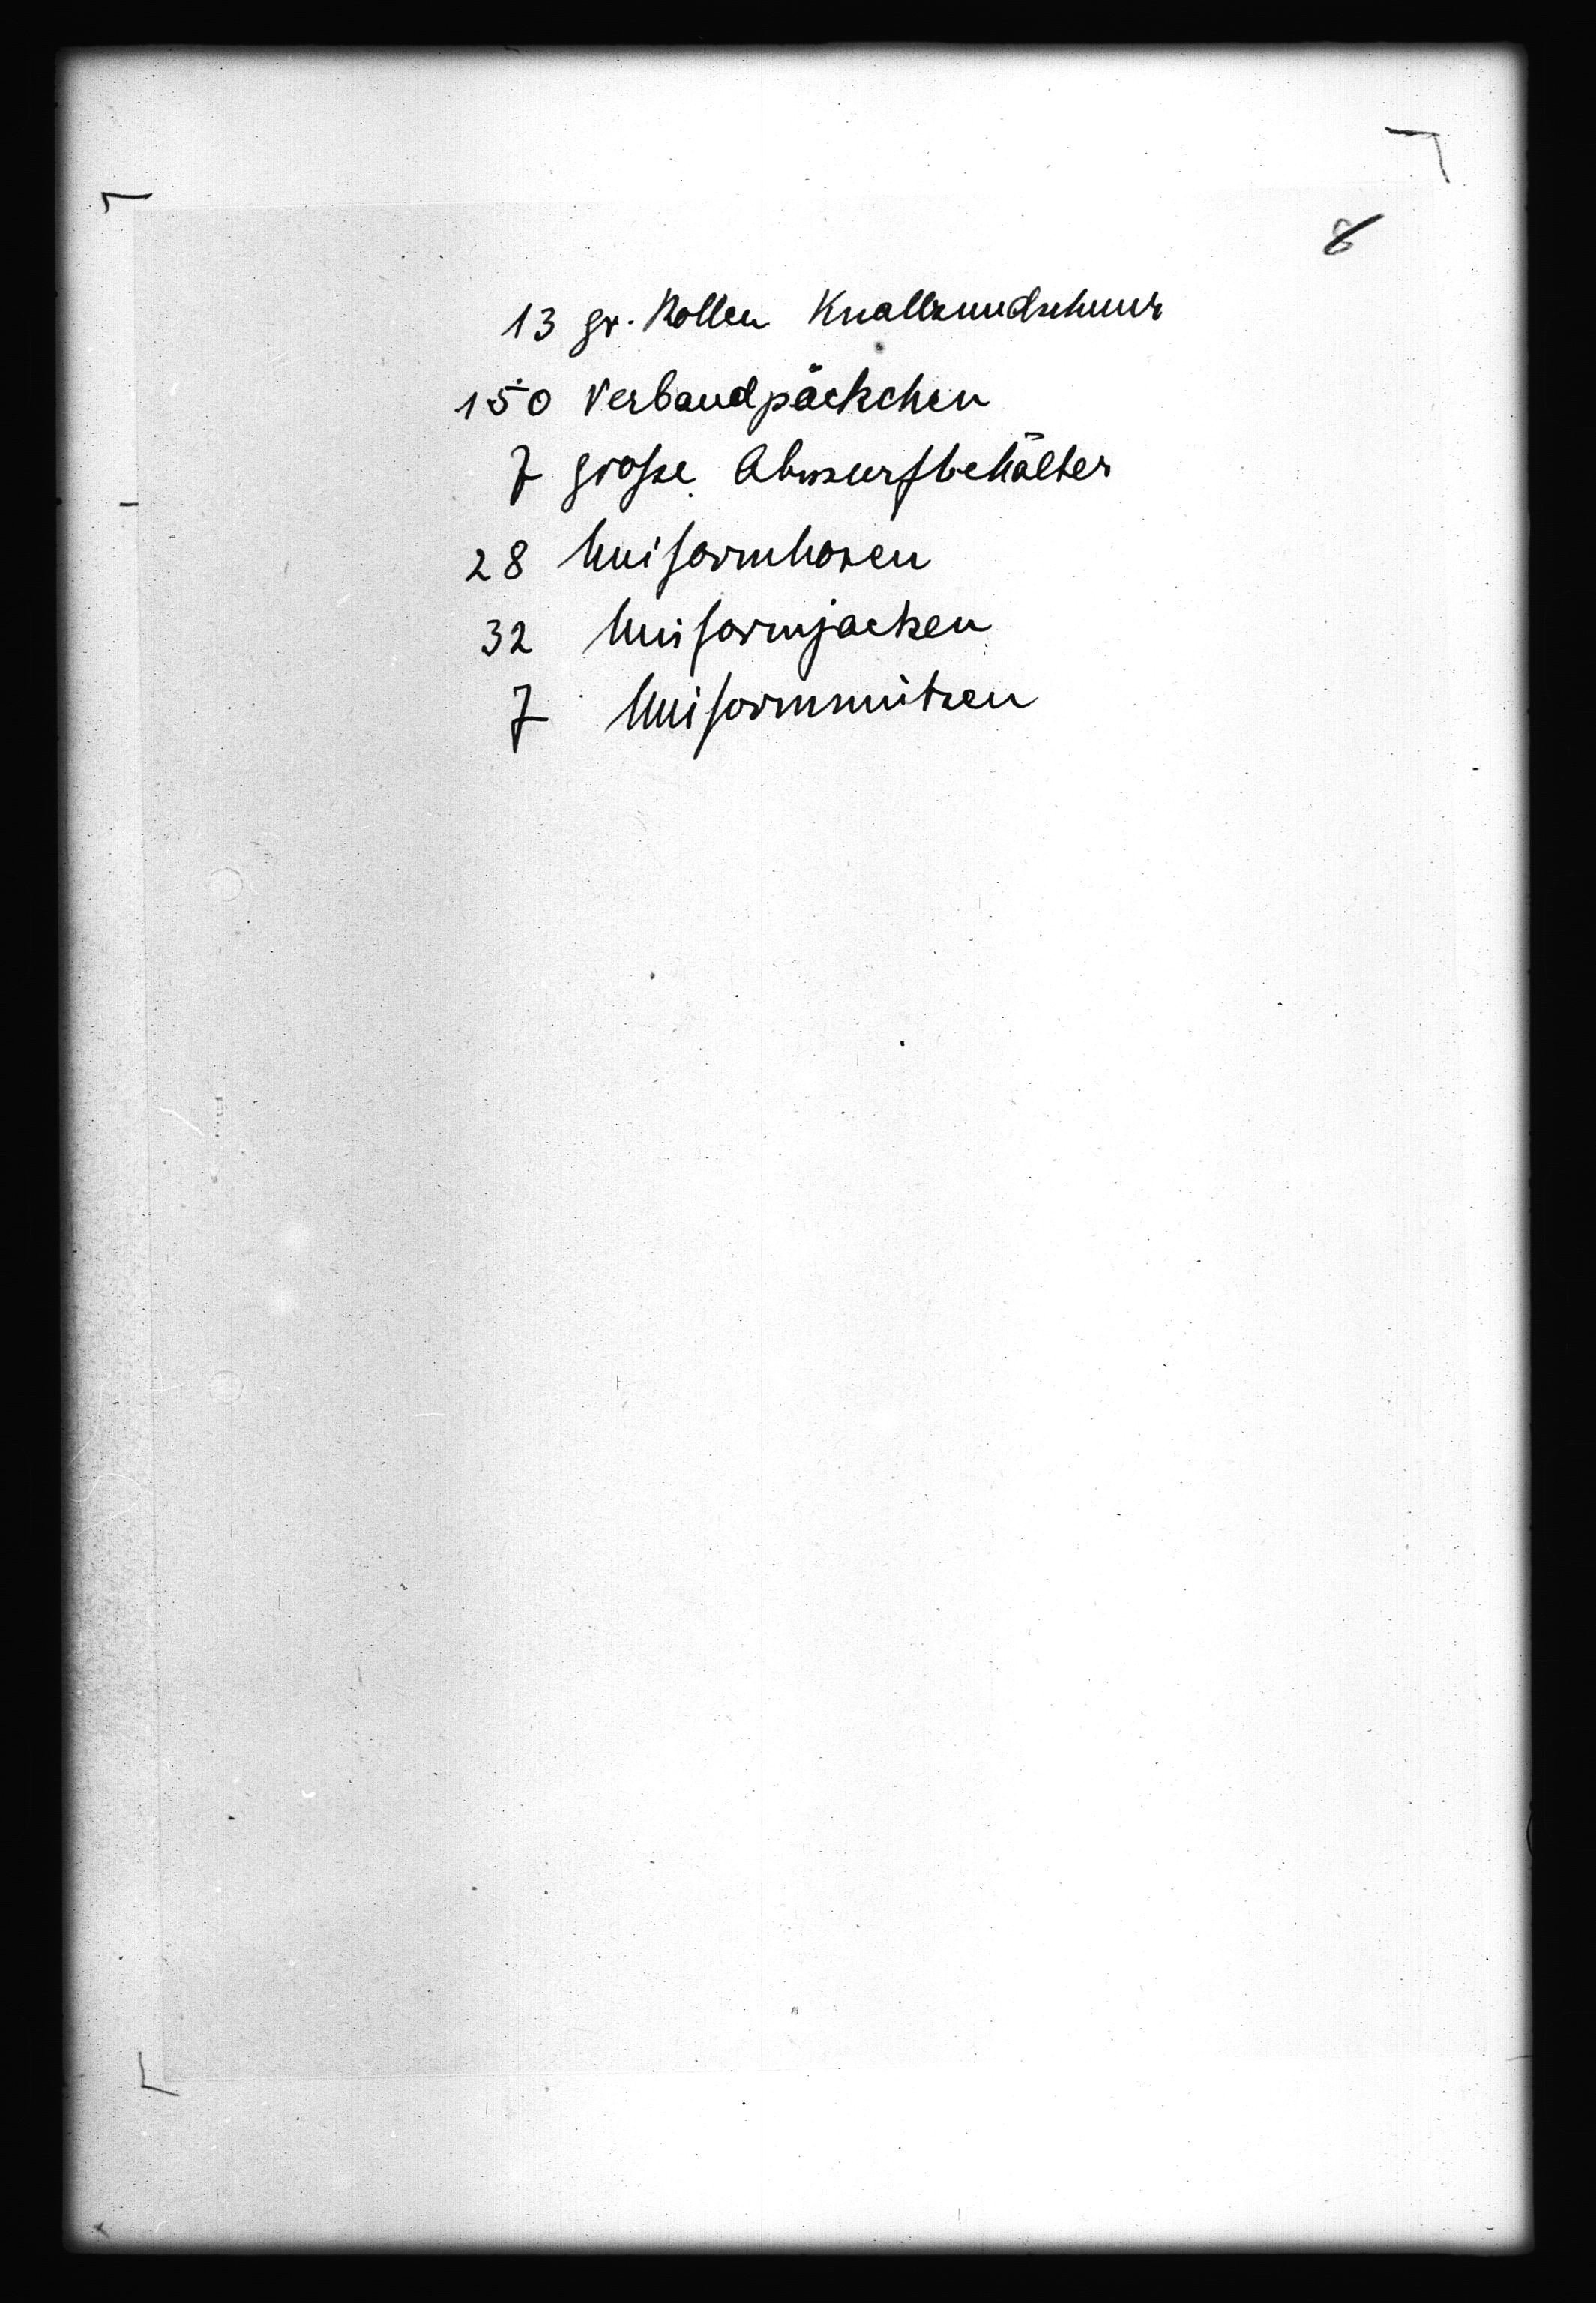 8
13 gr. Rollen Knallzundschnur
150 Verbandpäckchen
7 große Abwurfbehälter
28 Uniformhosen
32 Uniformjacken
7 Uniformmützen